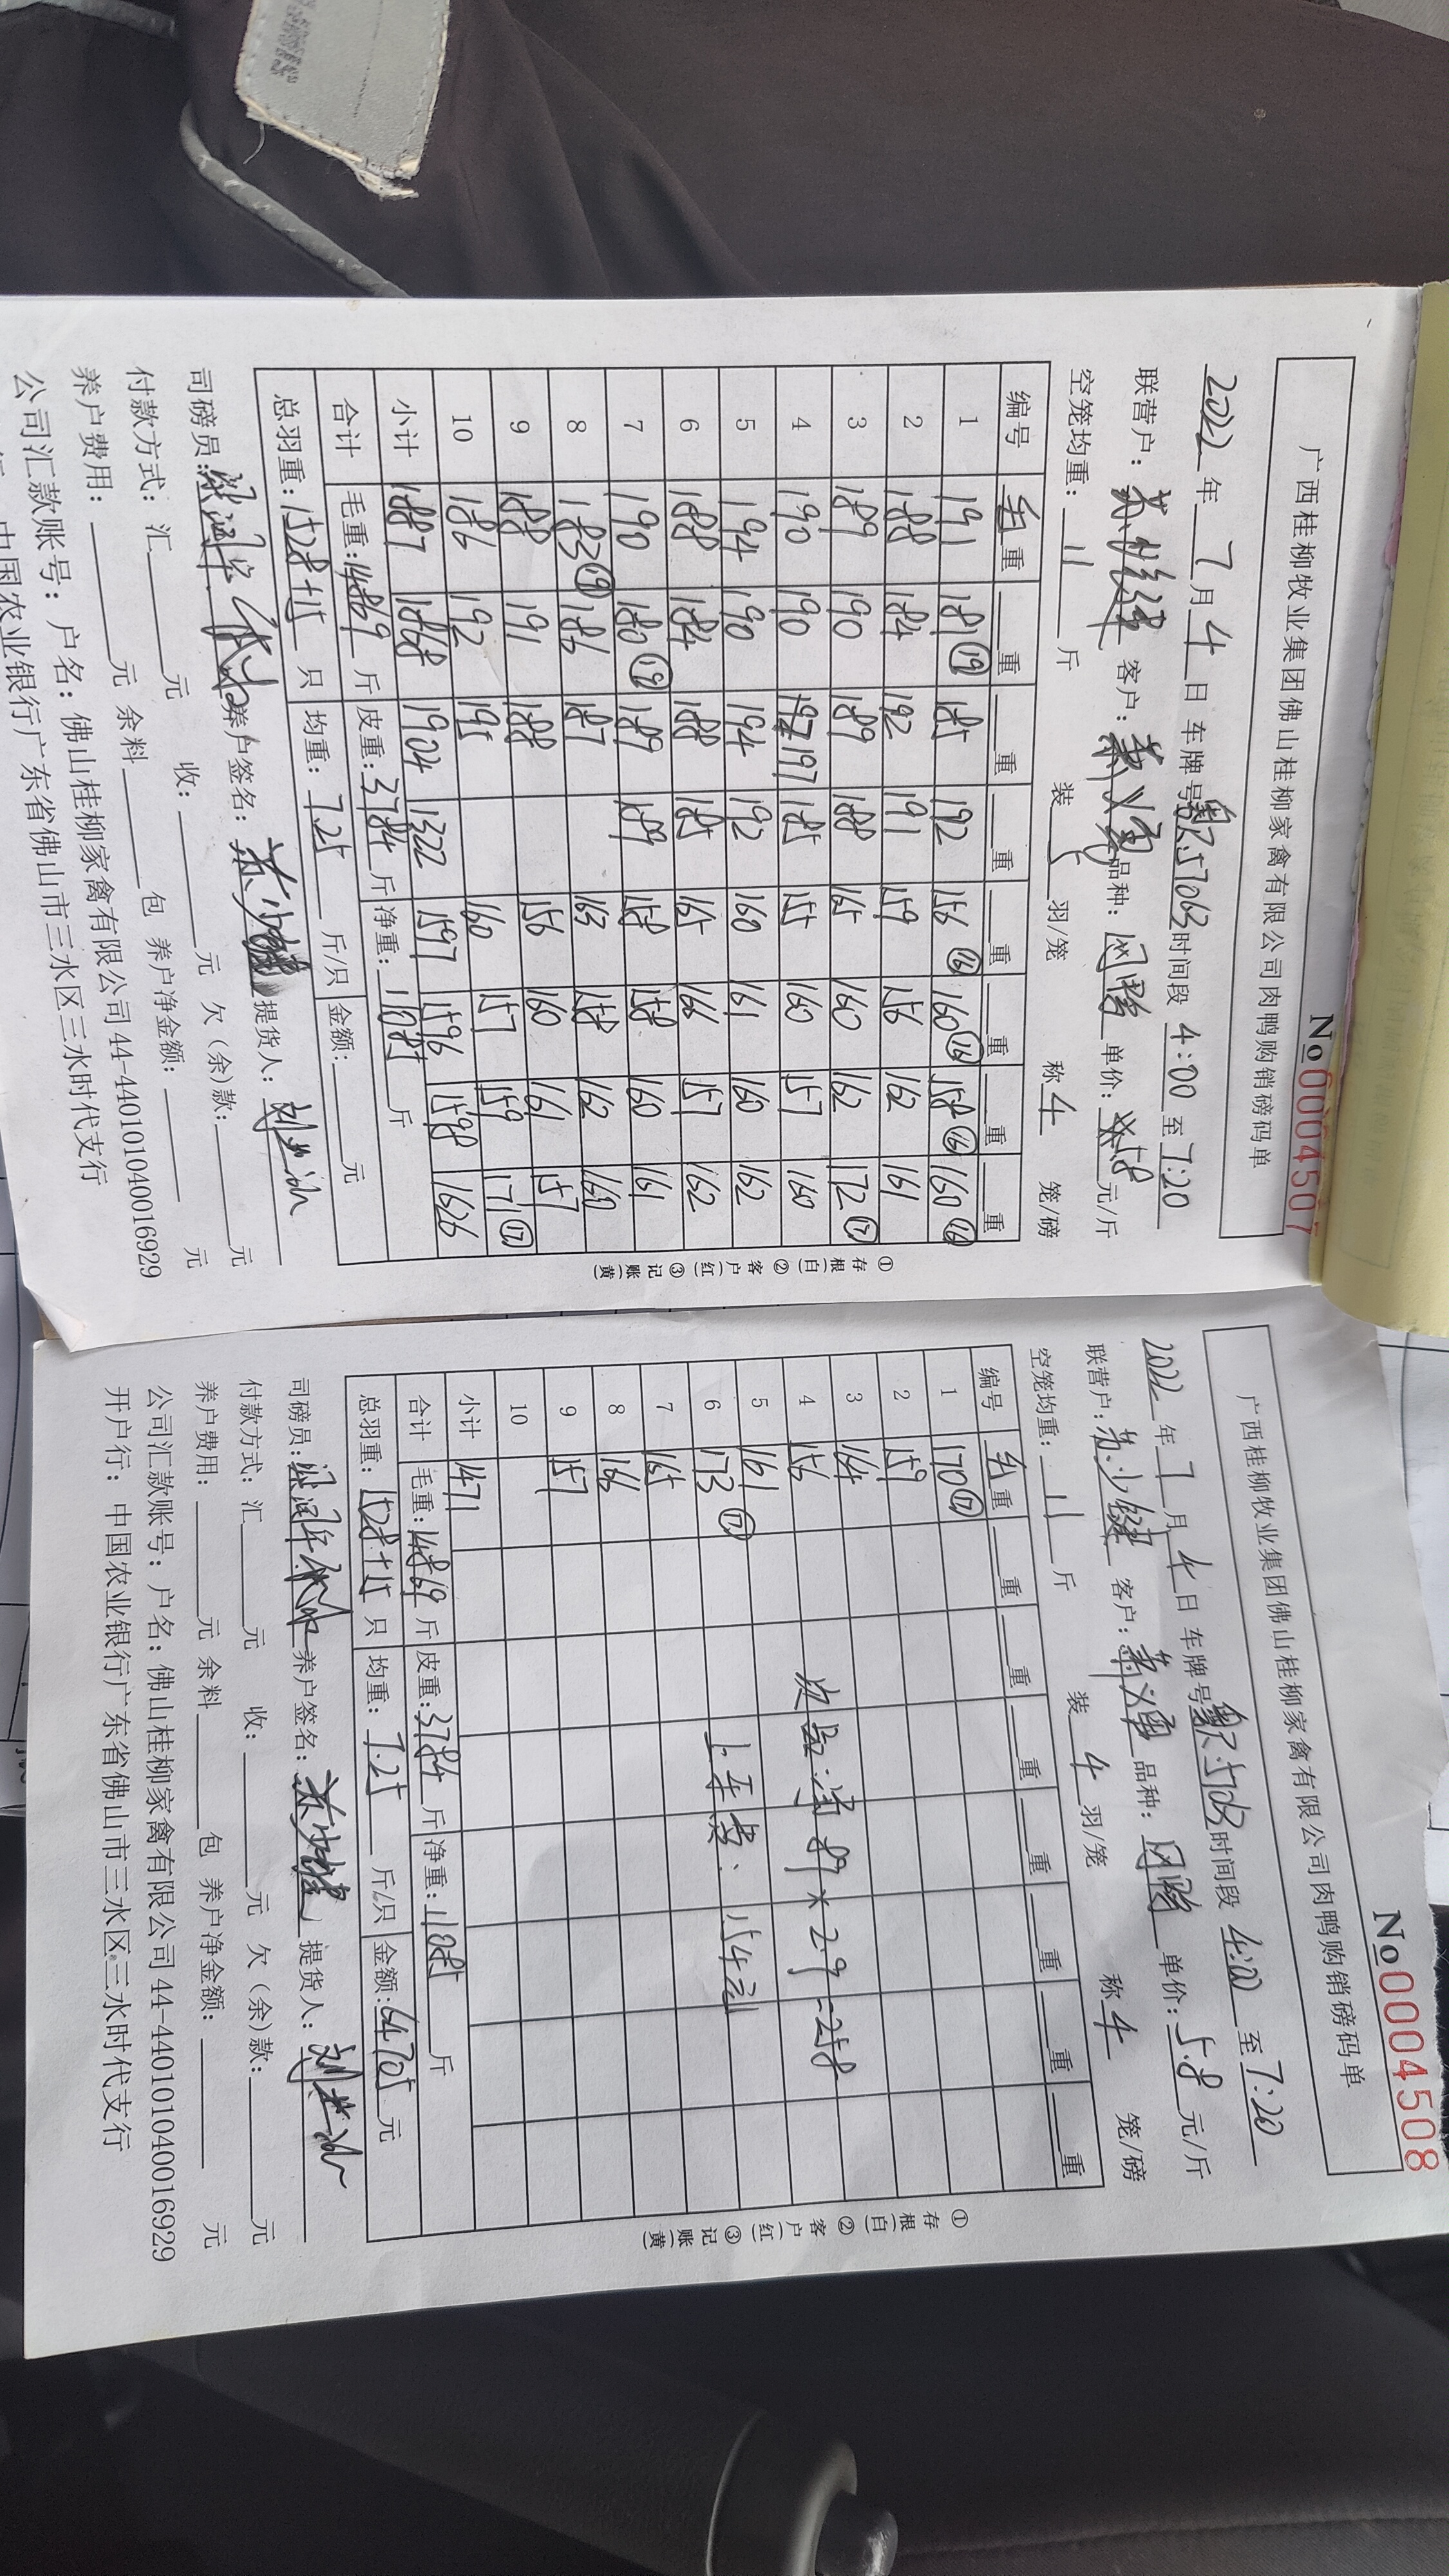 No 0004507
广西桂柳牧业集团佛山桂柳家禽有限公司肉鸭购销磅码单
2022 年 7 月 4 日 车牌号 57063 时间段 4:00 至 7:20
联营户: 客户: 品种: 单价: 5.8 元/斤
空笼均重: 11 斤 装 5 羽/笼 称 4 笼/磅
编号 毛重 重 重 重 重 重 重 重
1 191 181⑲ 185 192 156⑯ 160⑯ 158⑯ 160⑯
2 188 184 192 191 159 156 162 161
3 189 190 189 188 165 160 162 172⑰
4 190 190 197 185 155 160 157 160
5 194 190 194 192 160 161 160 162
6 188 184 188 185 165 166 157 162
7 190 180⑲ 189 189 158 158 160 161
8 183⑲ 186 187 163 158 162 160
9 188 191 188 156 160 161 157
10 186 192 195 160 157 159 171⑰
小计 1887 1868 1904 1322 1597 1596 1598 1626
合计 毛重: 14869 斤 皮重: 3784 斤 净重: 11085 斤
总羽重: 1528+15 只 均重: 7.25 斤/只 金额: 元
司磅员: 养户签名: 苏少键 提货人:
付款方式: 汇 元 收: 元 欠(余)款: 元
养户费用: 元 余料 包 养户净金额: 元
公司汇款账号: 户名: 佛山桂柳家禽有限公司44-440101040016929
中国农业银行广东省佛山市三水区三水时代支行
①存根(白)②客户(红)③记账(黄)
No 0004508
广西桂柳牧业集团佛山桂柳家禽有限公司肉鸭购销磅码单
2022 年 7 月 4 日 车牌号 57063 时间段 4:00 至 7:20
联营户: 苏少键 客户: 品种: 单价: 5.8 元/斤
空笼均重: 11 斤 装 4 羽/笼 称 4 笼/磅
编号 毛重 重 重 重 重 重 重 重
1 170⑰
2 159
3 164
4 156
5 161
6 173⑰
7 165
8 166
9 157
10
小计 1471
次品:净 89×2.9=258
上车费: 154元
合计 毛重: 14869 斤 皮重: 3784 斤 净重: 11085 斤
总羽重: 1528+15 只 均重: 7.25 斤/只 金额: 64705 元
司磅员: 养户签名: 苏少键 提货人:
付款方式: 汇 元 收: 元 欠(余)款: 元
养户费用: 元 余料 包 养户净金额: 元
公司汇款账号: 户名: 佛山桂柳家禽有限公司44-440101040016929
开户行: 中国农业银行广东省佛山市三水区三水时代支行
①存根(白)②客户(红)③记账(黄)